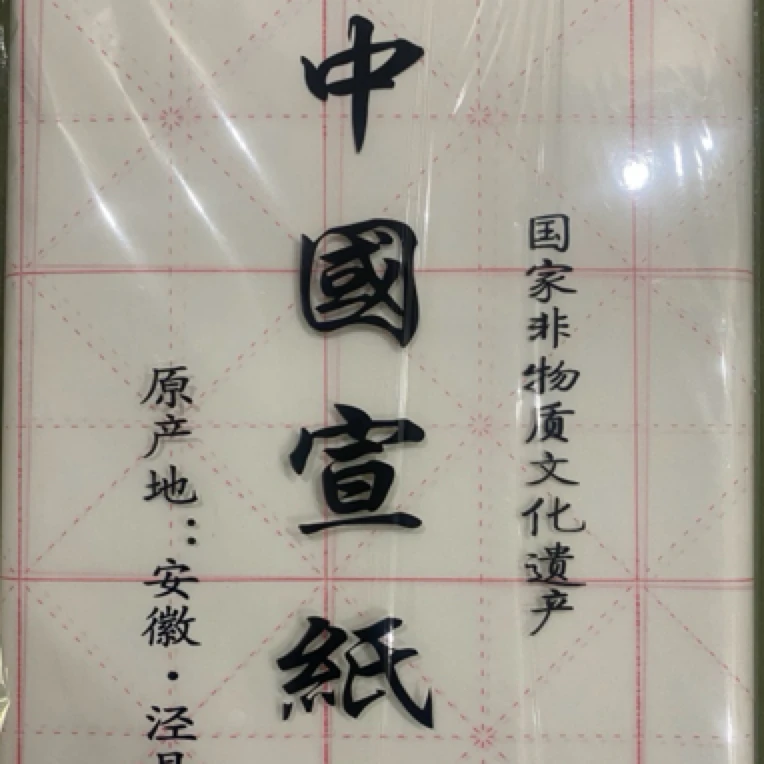 国家非物质文化遗产
中國宣紙
原产地：安徽·泾